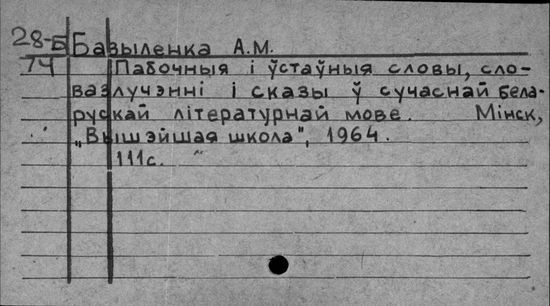 28-Б Базыленка А.М.
74 Пабочныя і ўстаўныя словы, сло-
вазлучэнні і сказы ў сучаснай бела-
рускай літературнай мове. Мінск,
„Вышэйшая школа", 1964.
111с.